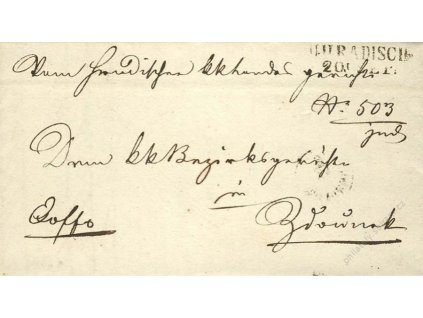 HRADISCH
20. OCT:
Vom Hradischer kk Landesgerichte
Nr. 503
jud
Dem kk Bezirksgerichte
in
Exoffo
Zdounek